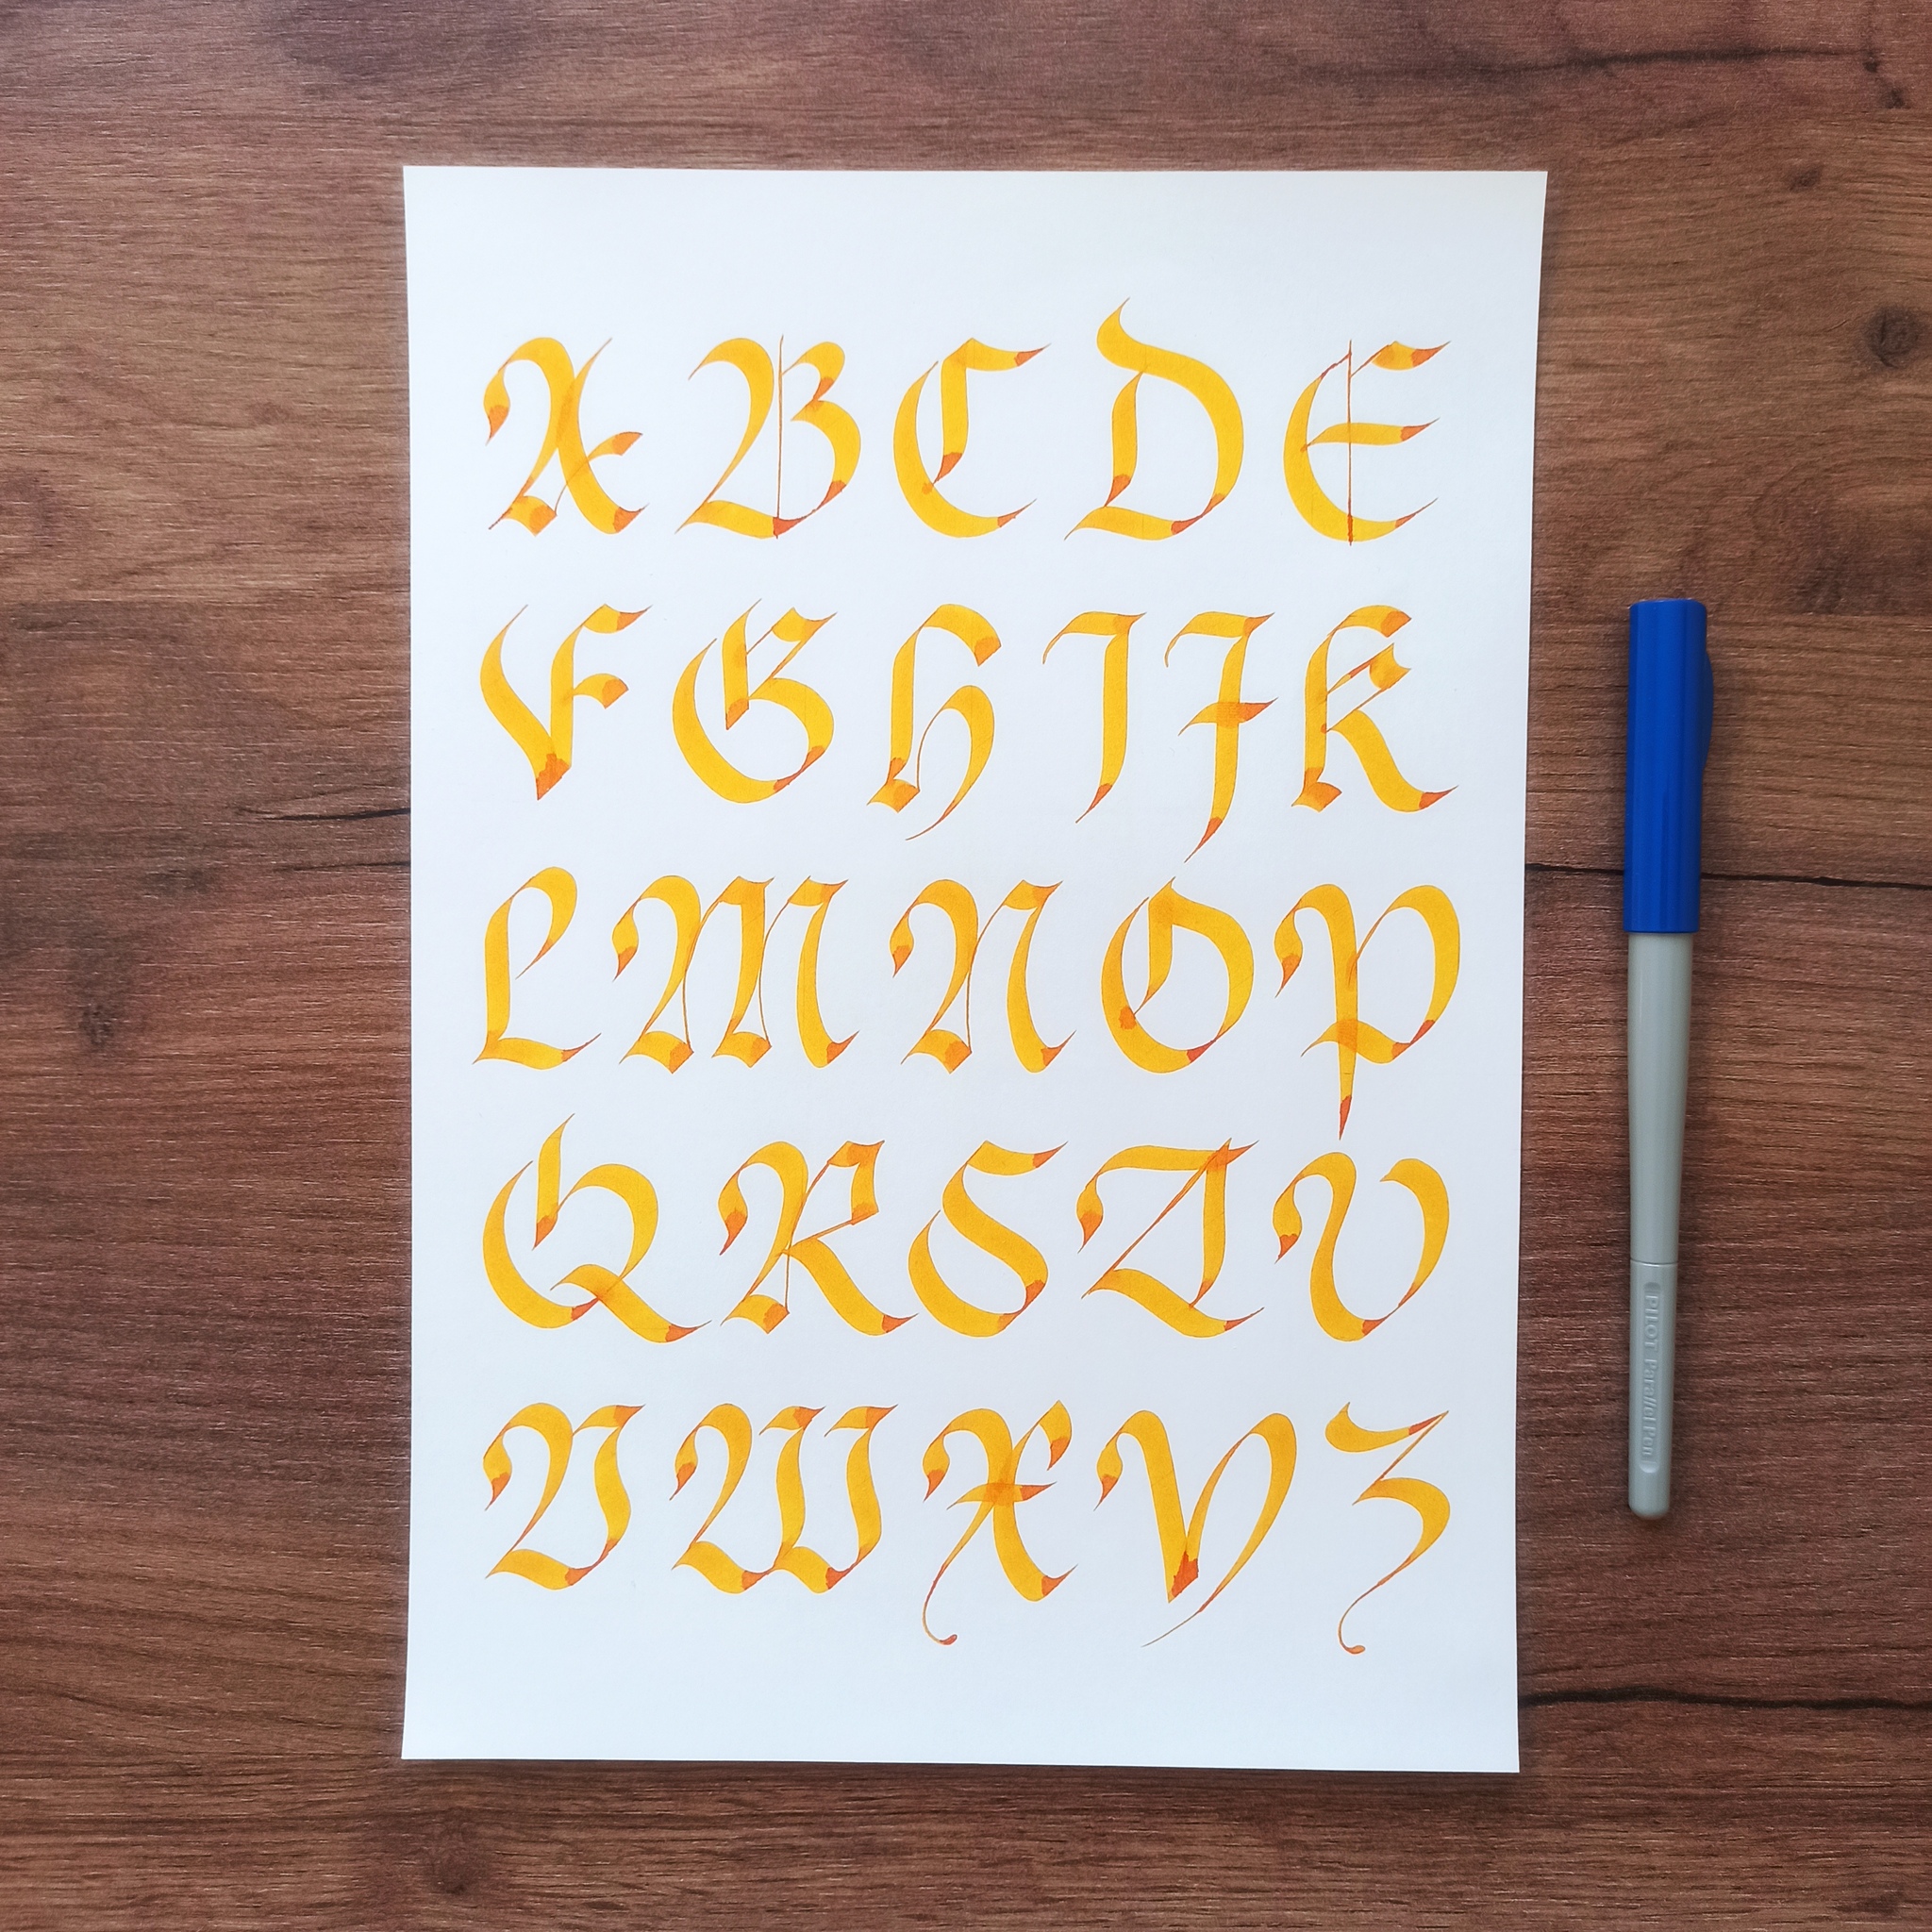 A B C D E
F G H I J K
L M N O P
Q R S T U
V W X Y Z
PILOT Parallel Pen